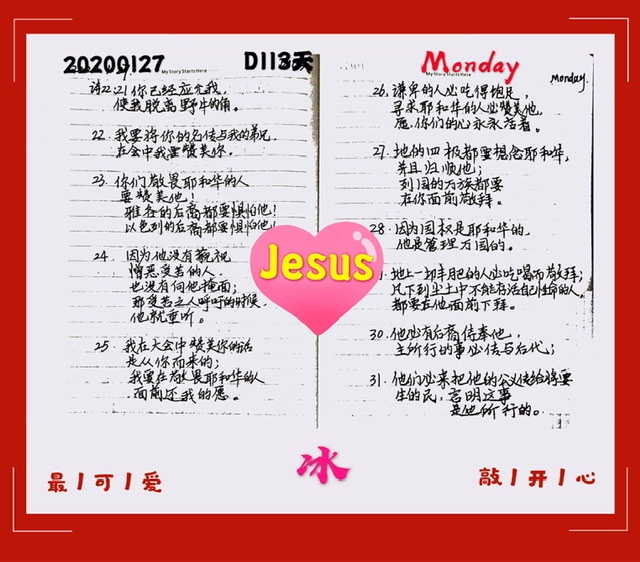 20200127
D113天
My Story Starts Here
诗22:21 你已经应允我,
使我脱离野牛的角。
22. 我要将你的名传与我的弟兄,
在会中我要赞美你。
23. 你们敬畏耶和华的人
要赞美他!
雅各的后裔都要惧怕他!
以色列的后裔都要惧怕他!
24. 因为他没有藐视
憎恶受苦的人,
也没有向他掩面;
那受苦之人呼吁的时候,
他就垂听。
25. 我在大会中赞美你的话
是从你而来的;
我要在敬畏耶和华的人
面前还我的愿。
Monday
My Story Starts Here
Monday.
26. 谦卑的人必吃得饱足,
寻求耶和华的人必赞美他,
愿你们的心永永活着。
27. 地的四极都要想念耶和华,
并且归顺他;
列国的万族都要
在你面前敬拜。
28. 因为国权是耶和华的,
他是管理万国的。
地上一切丰肥的人必吃喝而敬拜;
凡下到尘土中不能存活自己性命的人,
都要在他面前下拜。
30. 他必有后裔侍奉他,
主所行的事必传与后代;
31. 他们必来把他的公义传给将要
生的民,言明这事
是他所行的。
Jesus
冰
最|可|爱
敲|开|心